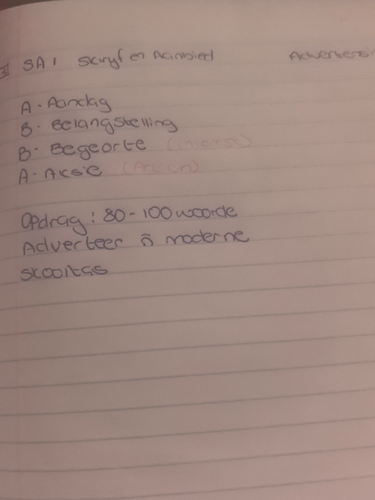 SA1 Skryf en Aanbied Advertensi
A - Aandag
B - Belangstelling
B - Begeerte
A - Aksie (Action)
Opdrag : 80 - 100 woorde
Adverteer ñ moderne
skooltas